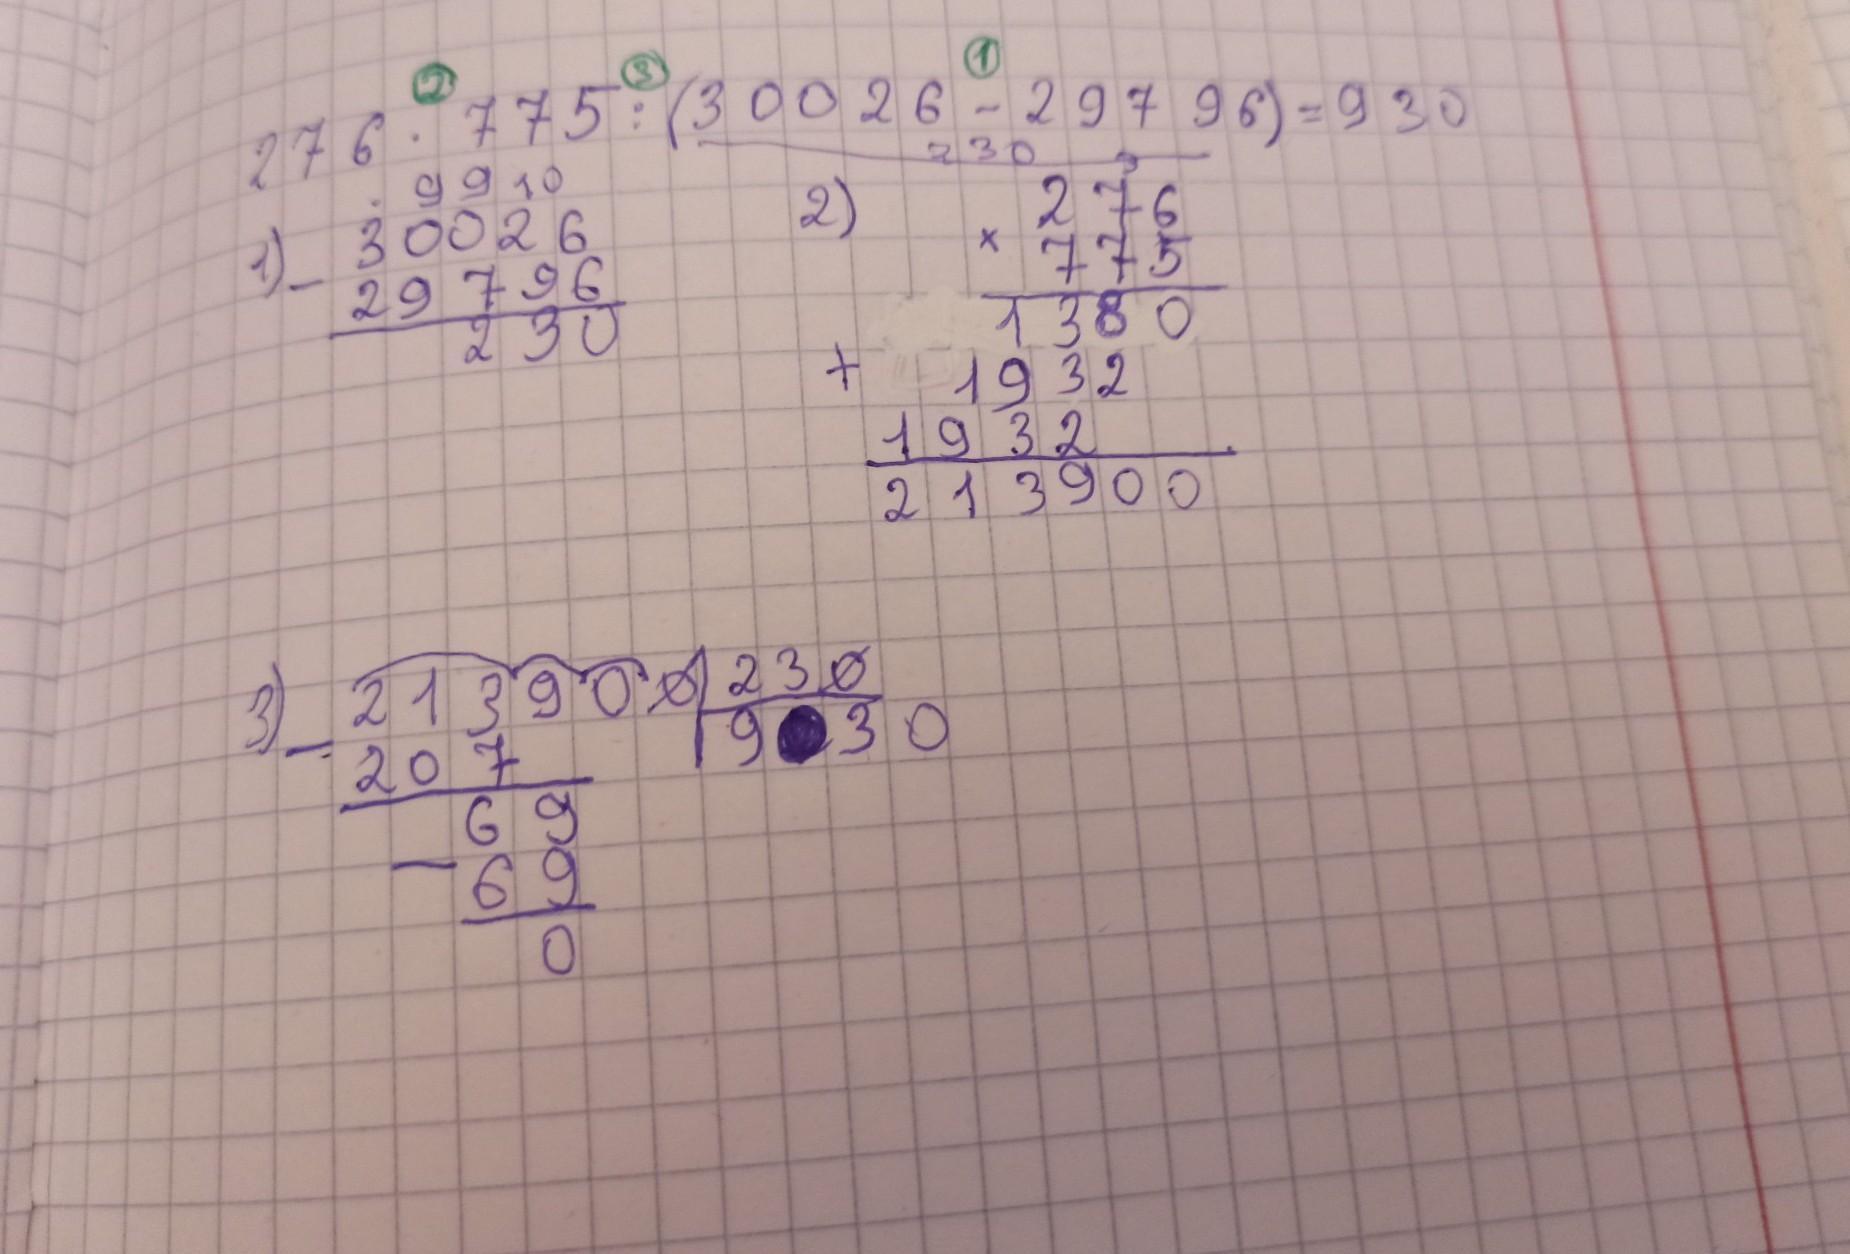 ② ③ ①
276 · 775 : (30026 - 29796) = 930
230
. 9 9 10
1) - 30026
29796
230
2) 3
276
× 775
1380
+ 1932
1932
213900
3) - 213900 | 230
207 | 930
69
- 69
0